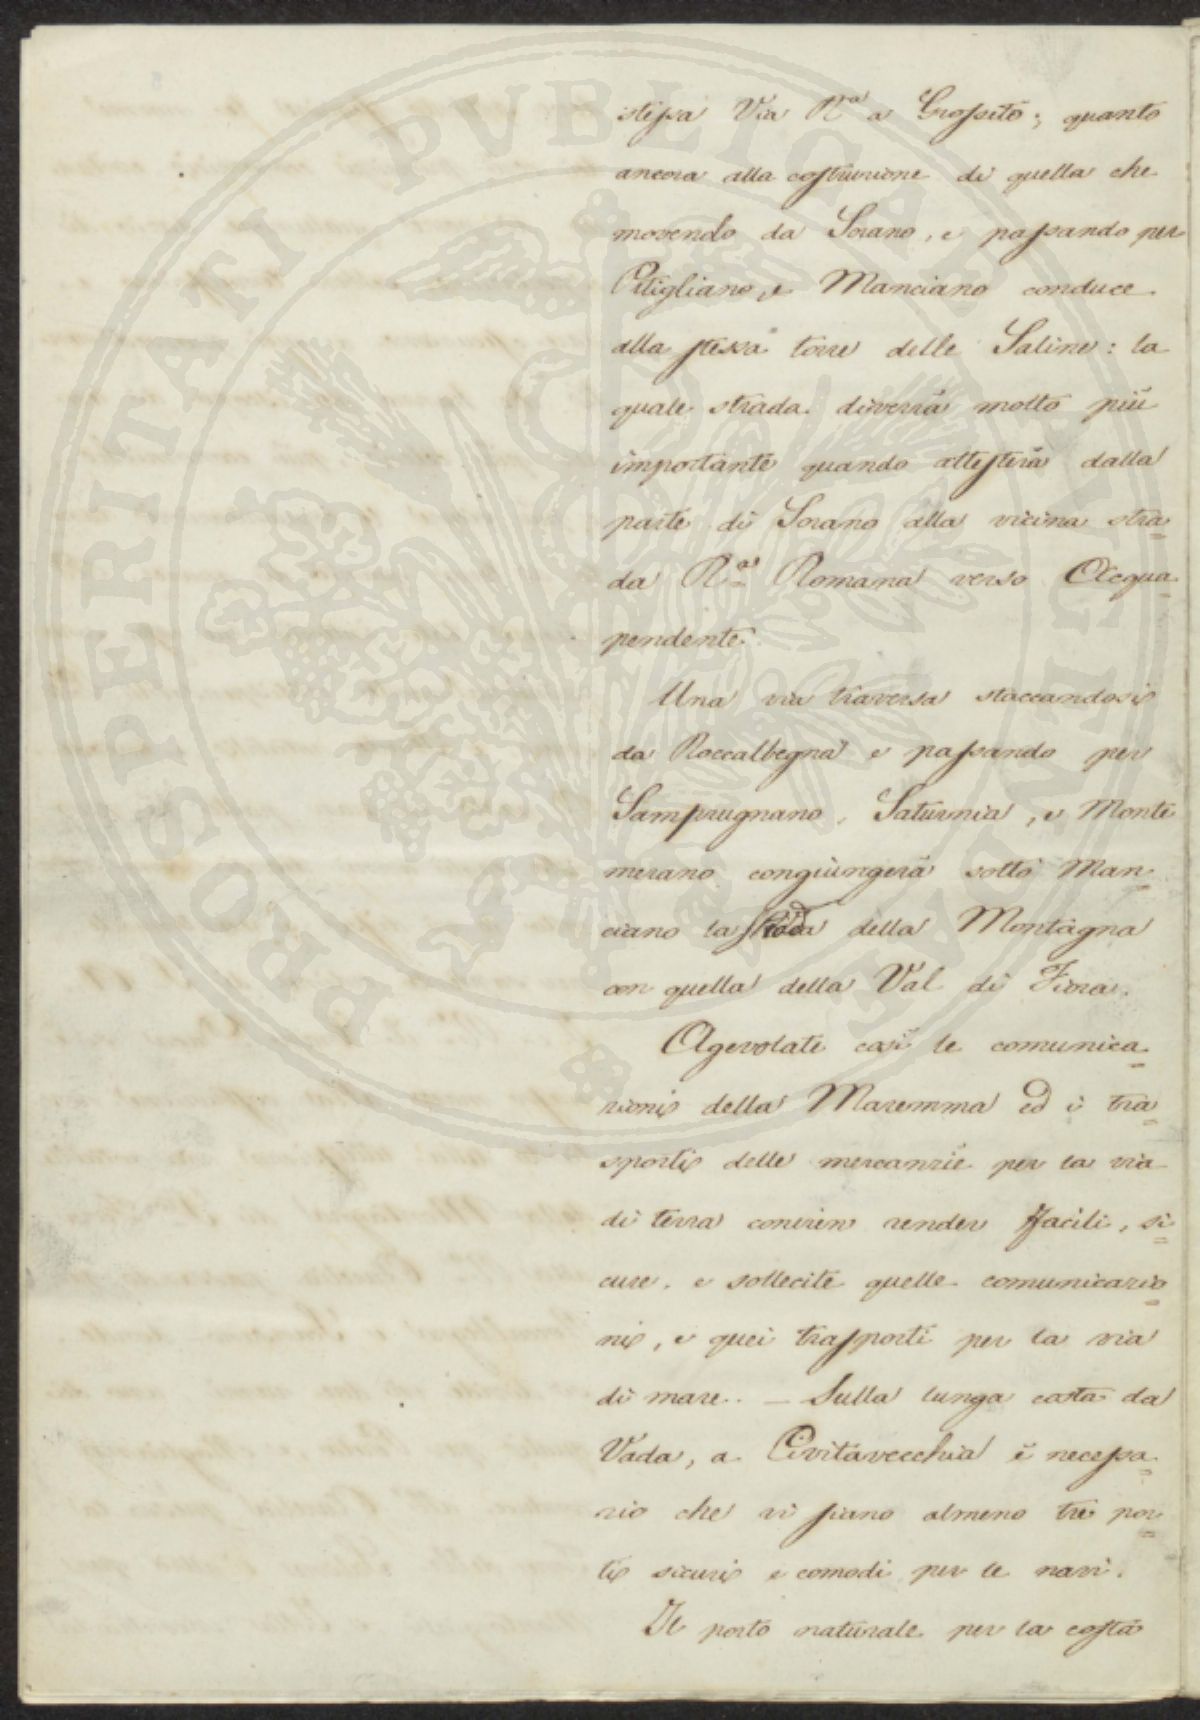 stessa Via R.ª a Grosseto; quanto
ancora alla costruzione di quella che
movendo da Sorano, e passando per
Pitigliano, e Manciano conduce
alla stessa torre delle Saline: la
quale strada diverrà molto più
importante quando attesterà dalla
parte di Sorano alla vicina stra=
da R.ª Romana verso Acqua=
pendente.
Una via traversa staccandosi
da Roccalbegna e passando per
Samprugnano, Saturnia, e Monte
merano congiungerà sotto Man=
ciano la strada della Montagna
con quella della Val di Fiora.
Agevolate così le comunica=
zioni della Maremma ed i tra=
sporti delle mercanzie per la via
di terra convien render facili, si=
cure, e sollecite quelle comunicazio=
ni, e quei trasporti per la via
di mare. — Sulla lunga costa da
Vada, a Civitavecchia è necessa=
rio che vi siano almeno tre por=
ti sicuri e comodi per le navi.
Il porto naturale per la costa
PROSPERITATI PVBLICAE AVGENDAE